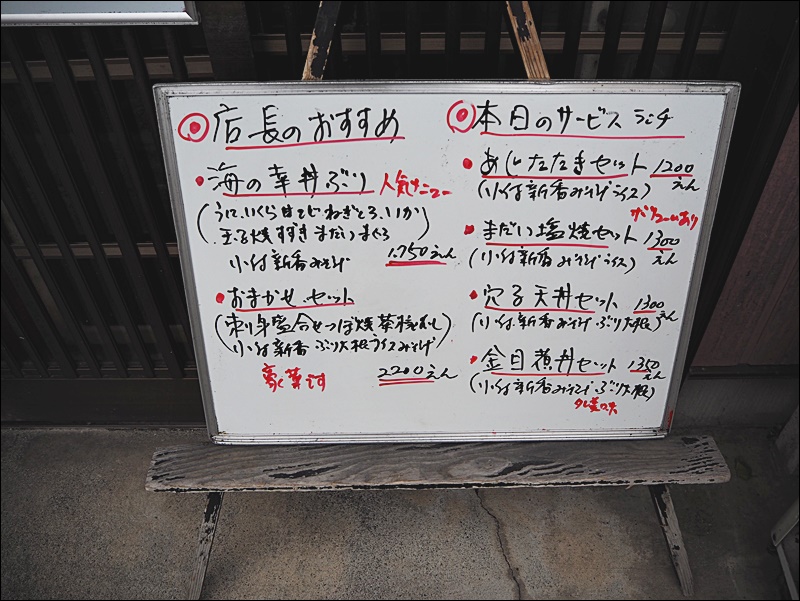 ◎店長のおすすめ
・海の幸丼ぶり 人気メニュー
(うに いくら ほたて ねぎとろ いか
玉子焼 すずき まだい まぐろ)
小付 新香 みそ汁 1,750えん
・おまかせセット
(刺身盛合せ つぼ焼 茶碗むし
小付 新香 ぶり大根 ライス みそ汁)
豪華です 2200えん
◎本日のサービス ランチ
・あじたたきセット 1200えん
(小付 新香 みそ汁 ライス)
ボリュームあり
・まだい塩焼セット 1300えん
(小付 新香 みそ汁 ライス)
・穴子天丼セット 1300えん
(小付 新香 みそ汁 ぶり大根)
・金目煮丼セット 1350えん
(小付 新香 みそ汁 ぶり大根)